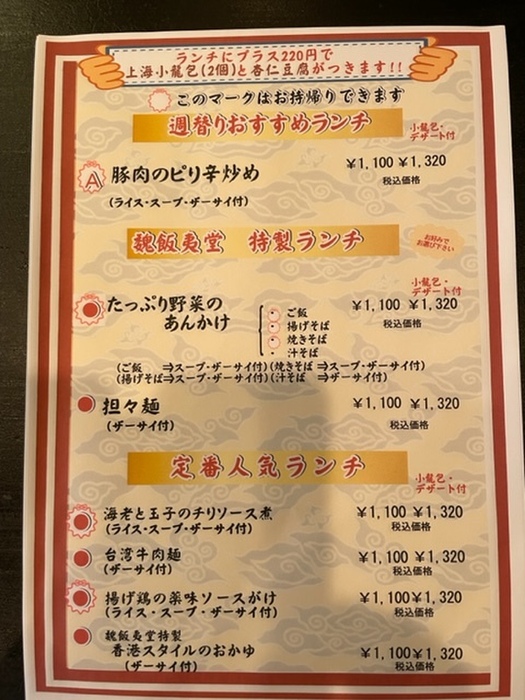 ランチにプラス220円で
上海小籠包(2個)と杏仁豆腐がつきます!!
このマークはお持帰りできます
週替りおすすめランチ
小籠包・
デザート付
A 豚肉のピリ辛炒め ¥1,100 ¥1,320
税込価格
(ライス・スープ・ザーサイ付)
魏飯夷堂 特製ランチ
お好みで
お選び下さい
小籠包・
デザート付
たっぷり野菜の ¥1,100 ¥1,320
あんかけ 税込価格
・ご飯
・揚げそば
・焼きそば
・汁そば
(ご飯 ⇒スープ・ザーサイ付)(焼きそば⇒スープ・ザーサイ付)
(揚げそば⇒スープ・ザーサイ付)(汁そば ⇒ザーサイ付)
担々麺 ¥1,100 ¥1,320
(ザーサイ付) 税込価格
定番人気ランチ
小籠包・
デザート付
海老と玉子のチリソース煮 ¥1,100 ¥1,320
(ライス・スープ・ザーサイ付) 税込価格
台湾牛肉麺 ¥1,100 ¥1,320
(ザーサイ付) 税込価格
揚げ鶏の薬味ソースがけ ¥1,100¥1,320
(ライス・スープ・ザーサイ付) 税込価格
魏飯夷堂特製
香港スタイルのおかゆ ¥1,100¥1,320
(ザーサイ付) 税込価格